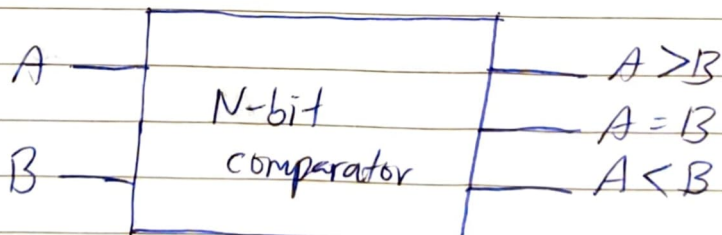 A
B
N-bit
comparator
A > B
A = B
A < B